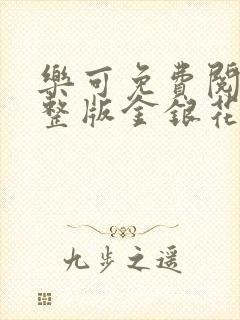 樂可免費閱
整版金銀花
九步之遥